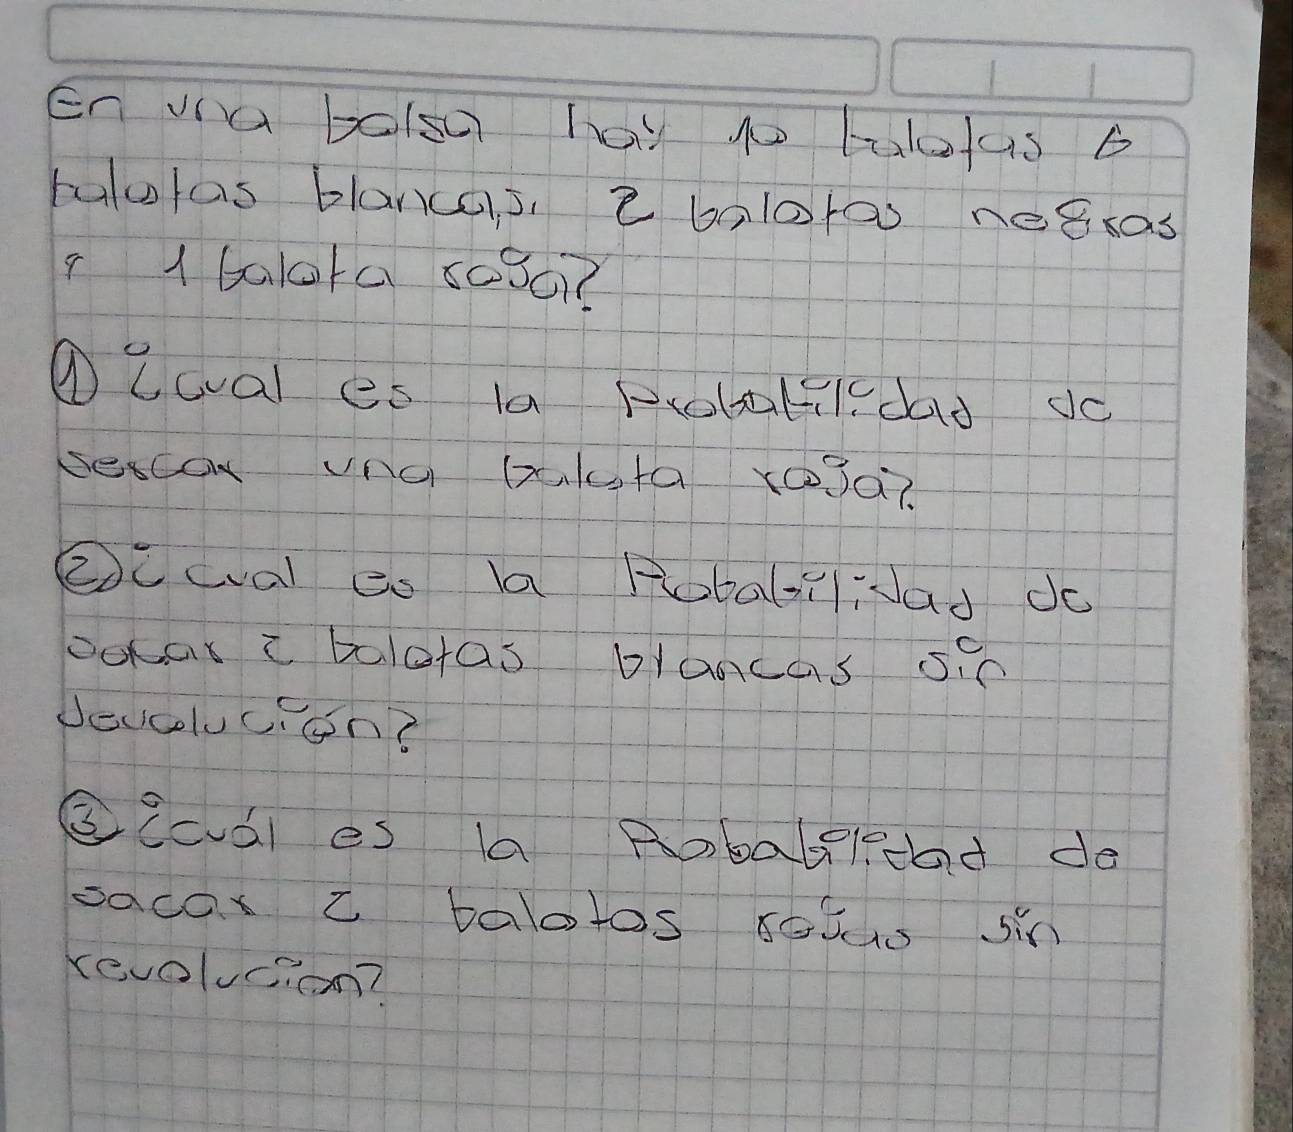 En una bolsa hay 10 balotas 6
balotas blancas, 2 balotas negras
y 1 balota roja?
① ¿cual es la Probabilidad de
sercar una balota roja?
② ¿cual es la Probabilidad de
sacar 2 balotas blancas sin
devolución?
③ ¿cuál es la Probabilidad de
sacar 2 balotas rojas sin
revolucion?